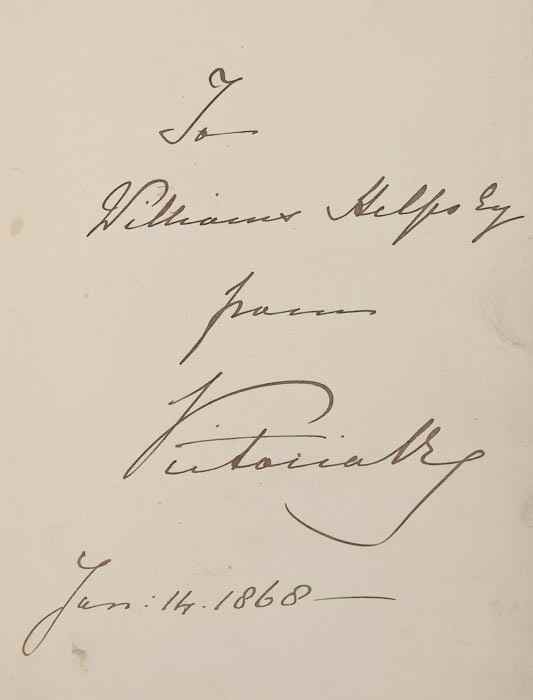 To
Williams Helps Esq
from
Victoria R
Jan: 14. 1868